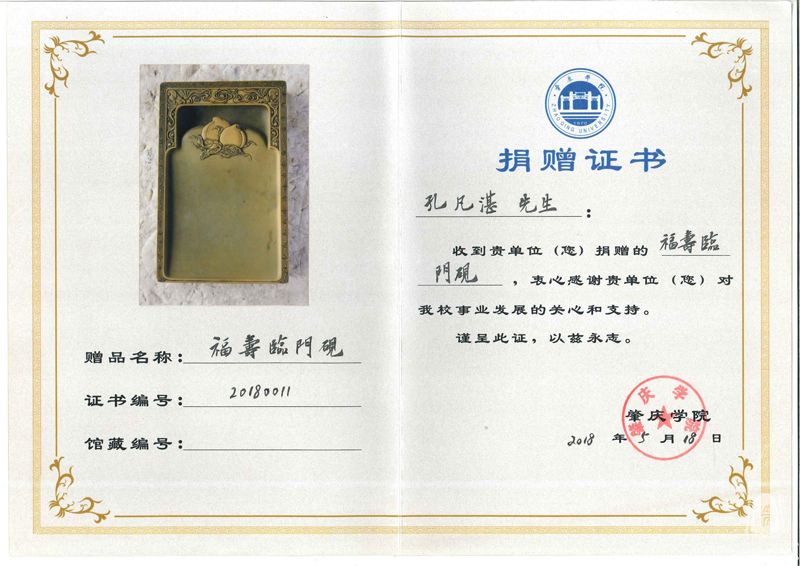 赠品名称：福壽臨門硯
证书编号：20180011
馆藏编号：
肇庆学院
ZHAOQING UNIVERSITY
1970
捐赠证书
孔凡湛 先生：
收到贵单位（您）捐赠的 福壽臨
門硯，衷心感谢贵单位（您）对
我校事业发展的关心和支持。
谨呈此证，以兹永志。
肇庆学院
肇庆学院
2018 年 5 月 18 日